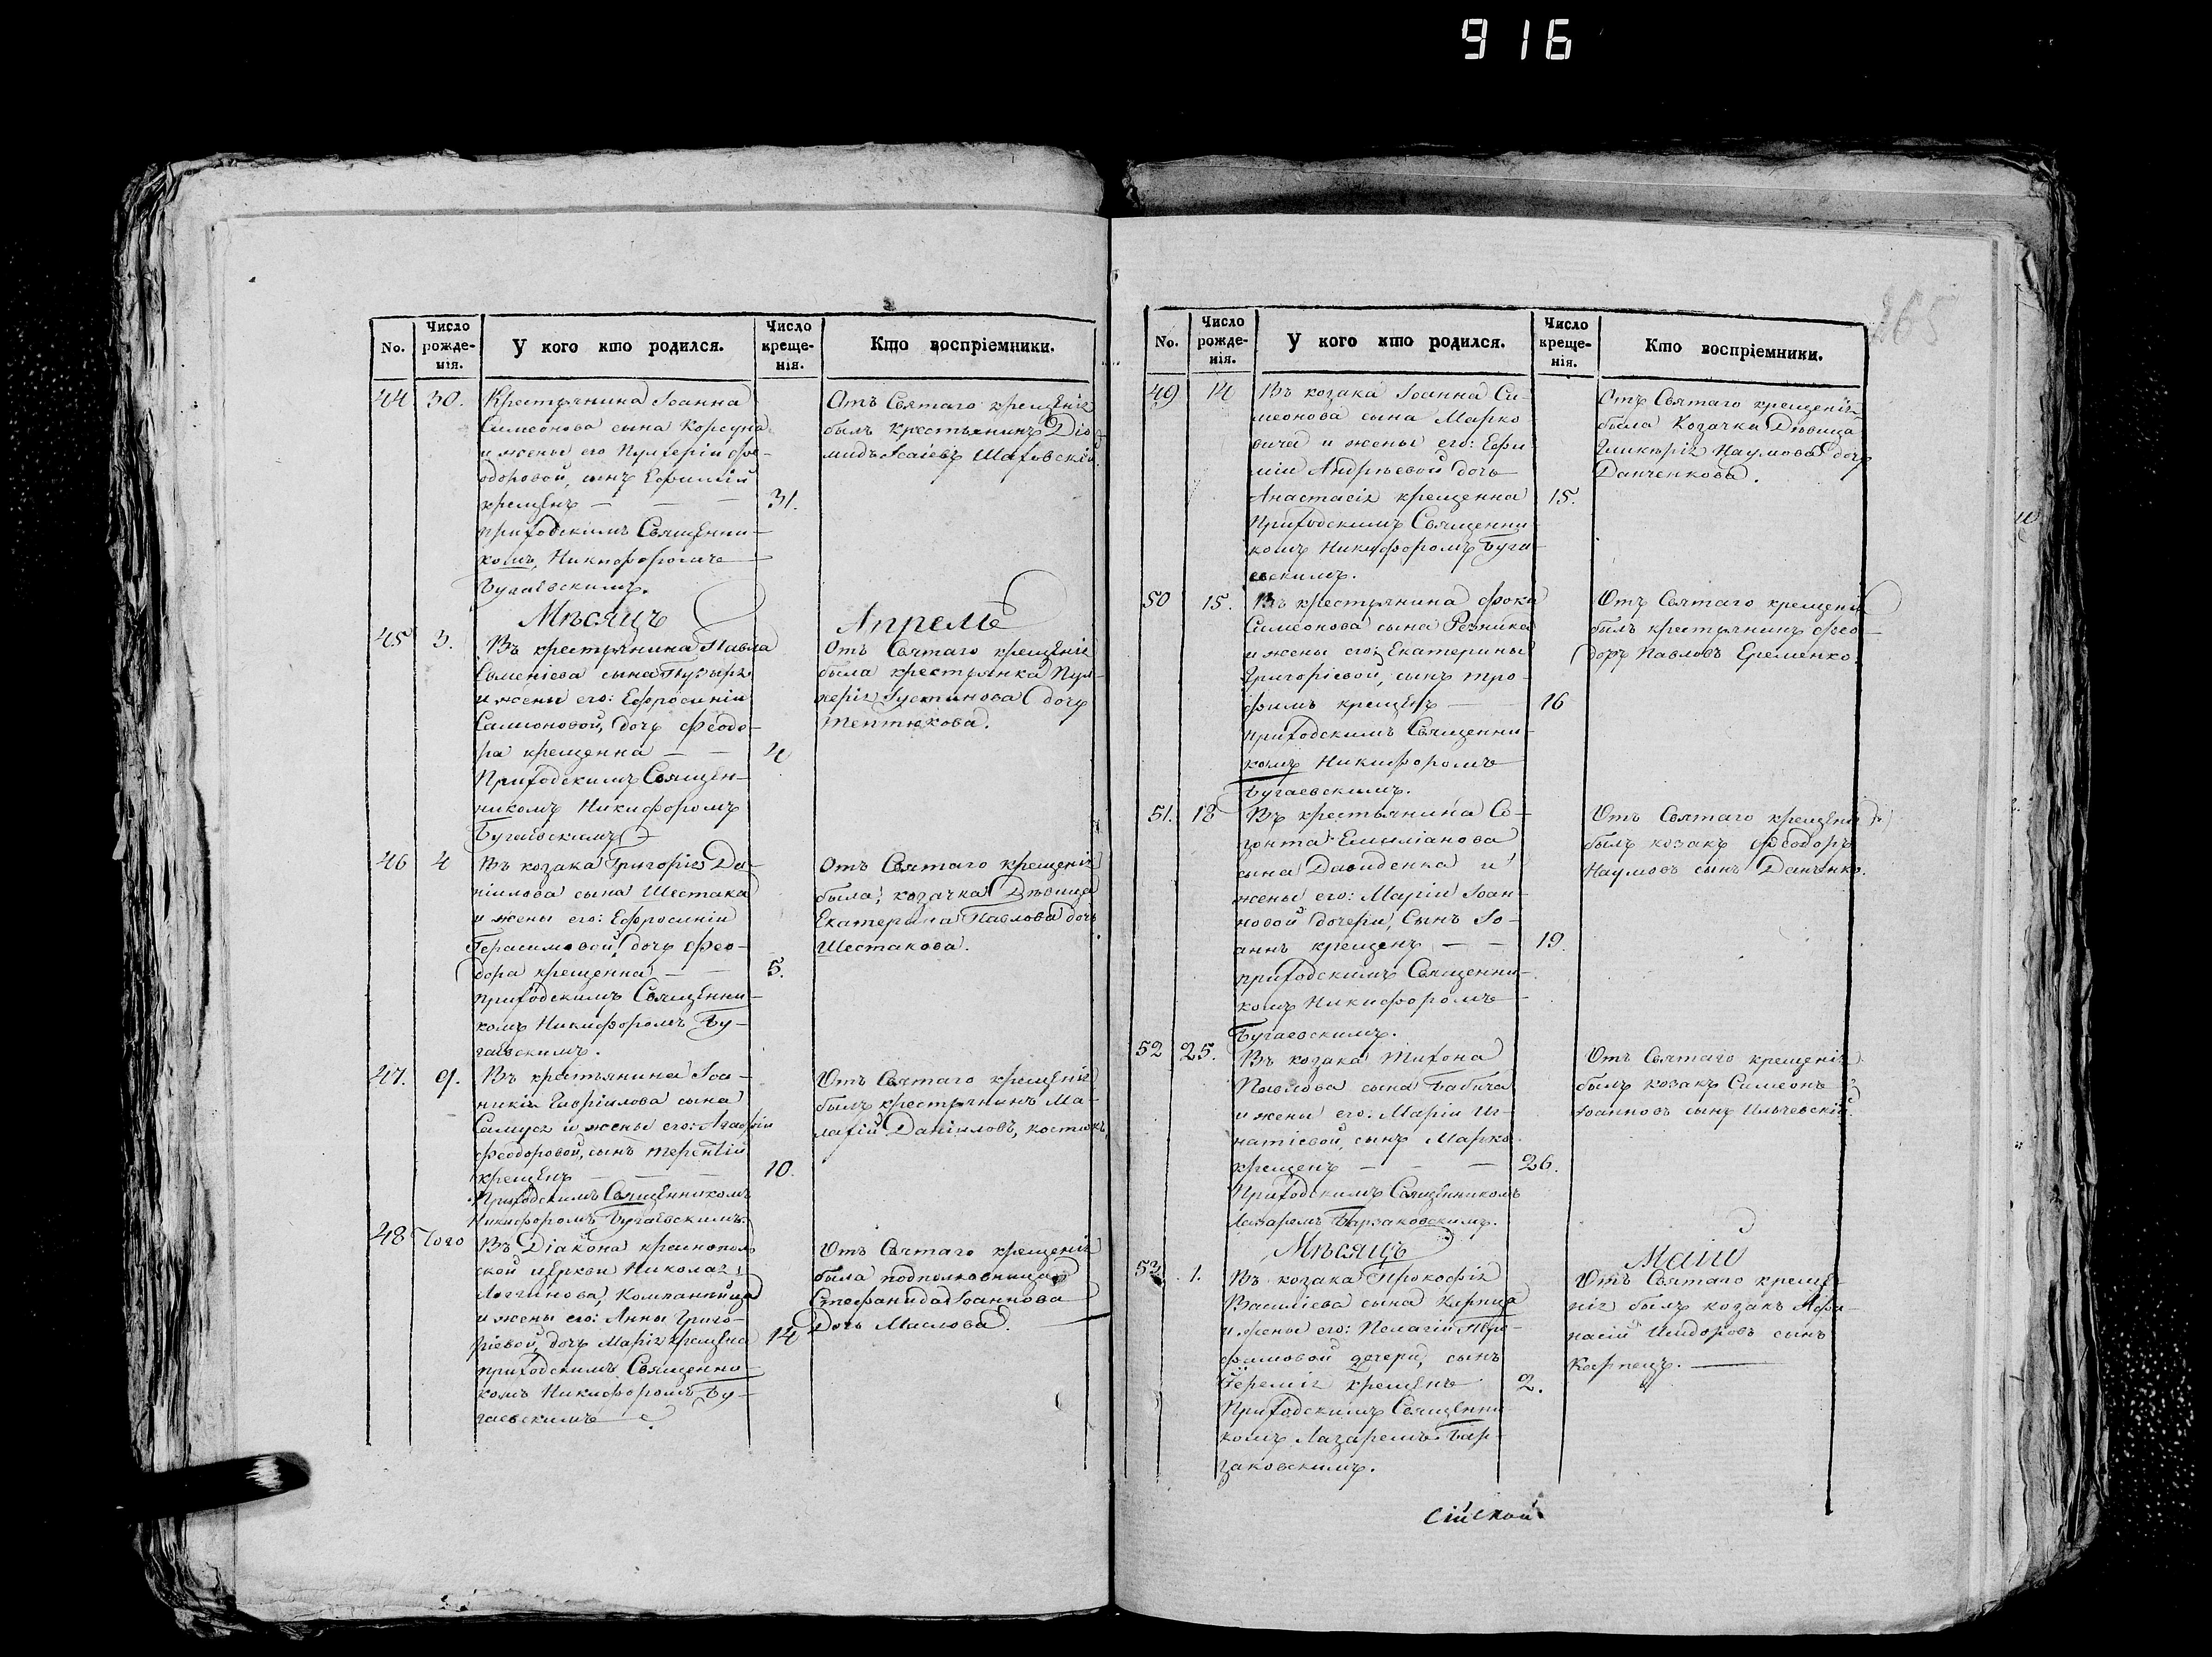 916
165
No. Число рожде-нія. У кого кто родился. Число креще-нія. Кто воспріемники.
44. 30. Крестьянина Іоанна
Симеонова сына Корсуна
и жены его Пулхеріи Фе-
одоровой, сынъ Ефимій
крещенъ — — 31.
приходскимъ Священни-
комъ, Никифоромъ
Бугаевскимъ.
Отъ Святаго крещенія
былъ крестьянинъ Діо-
мидъ Исаіевъ Шаховскій.
Мѣсяцъ Апрель
45 3. Въ крестьянина Павла
Евменіева сына Пузыря
и жены его: Ефросиніи
Самсоновой, дочь Феодо-
ра крещенна — — 4
Приходскимъ Священ-
никомъ Никифоромъ
Бугаевскимъ
Отъ Святаго крещенія
была крестьянка Пул-
херія Іустинова дочь
Тептюкова.
46 4 Въ козака Григорія Да-
ніилова сына Шестака
и жены его: Ефросиніи
Герасимовой, дочь Фео-
дора крещенна — — 5.
приходскимъ Священни-
комъ Никифоромъ Бу-
гаевскимъ.
Отъ Святаго крещенія
была, козачка Дѣвица
Екатерина Павлова дочь
Шестакова.
47. 9. Въ крестьянина Іоа-
никія Гавріилова сына
Самуся и жены его: Агафіи
Феодоровой, сынъ Терентій
крещенъ — — — 10.
Приходскимъ Священникомъ
Никифоромъ Бугаевскимъ.
Отъ Святаго крещенія
былъ крестьянинъ Ма-
лахій Даніиловъ, костюкъ,
48 Того Въ Діакона краснополь
ской церкви Николая,
Логгинова, Компанѣйца
и жены его: Анны Григо-
ріевой, дочь Марія крещена 14
приходскимъ Священни-
комъ Никифоромъ Бу-
гаевскимъ
Отъ Святаго крещенія
была подполковница
Стефанида Іоаннова
Дочь Маслова.
No. Число рожде-нія. У кого кто родился. Число креще-нія. Кто воспріемники.
49 14 Въ козака Іоанна Си-
меонова сына Марко
вича и жены его: Ефи
міи Андрѣевой дочь
Анастасія крещенна 15.
Приходскимъ Священни
комъ Никифоромъ Буга-
евскимъ.
Отъ Святаго крещенія
была Козачка Дѣвица
Гликерія Наумова дочь
Данченкова.
50 15. Въ крестьянина Фоки
Симеонова сына Резника
и жены его: Екатерины
Григоріевой, сынъ Тро-
фимъ крещенъ — 16
приходскимъ Священни-
комъ Никифоромъ
Бугаевскимъ.
Отъ Святаго крещенія
былъ крестьянинъ Фео-
доръ Павловъ Еременко.
51. 18 Въ крестьянина Со-
зонта Емиліанова
сына Давиденка и
жены его: Маріи Іоан-
новой дочери, Сынъ Іо-
аннъ крещенъ — — 19.
приходскимъ Священни-
комъ Никифоромъ
Бугаевскимъ.
Отъ Святаго крещенія
былъ козакъ Феодоръ
Наумовъ сынъ Данченко.
52 25. Въ козака Тихона
Павлова сына Бабича
и жены его: Маріи Иг-
натіевой, сынъ Марко
крещенъ — — — 26.
Приходскимъ Священникомъ
Лазаремъ Барзаковскимъ.
Отъ Святаго крещенія
былъ козакъ Симеонъ
Іоанновъ сынъ Ильчевскій.
Мѣсяцъ Маій
53. 1. Въ козака Прокофія
Василіева сына Карпца
и жены его: Пелагіи Тро-
фимовой дочери, сынъ
Іеремія крещенъ 2.
Приходскимъ Священни
комъ Лазаремъ Бар-
заковскимъ.
Отъ Святаго креще-
нія былъ козакъ Афа-
насій Исидоровъ сынъ
Карпецъ. —
сійской